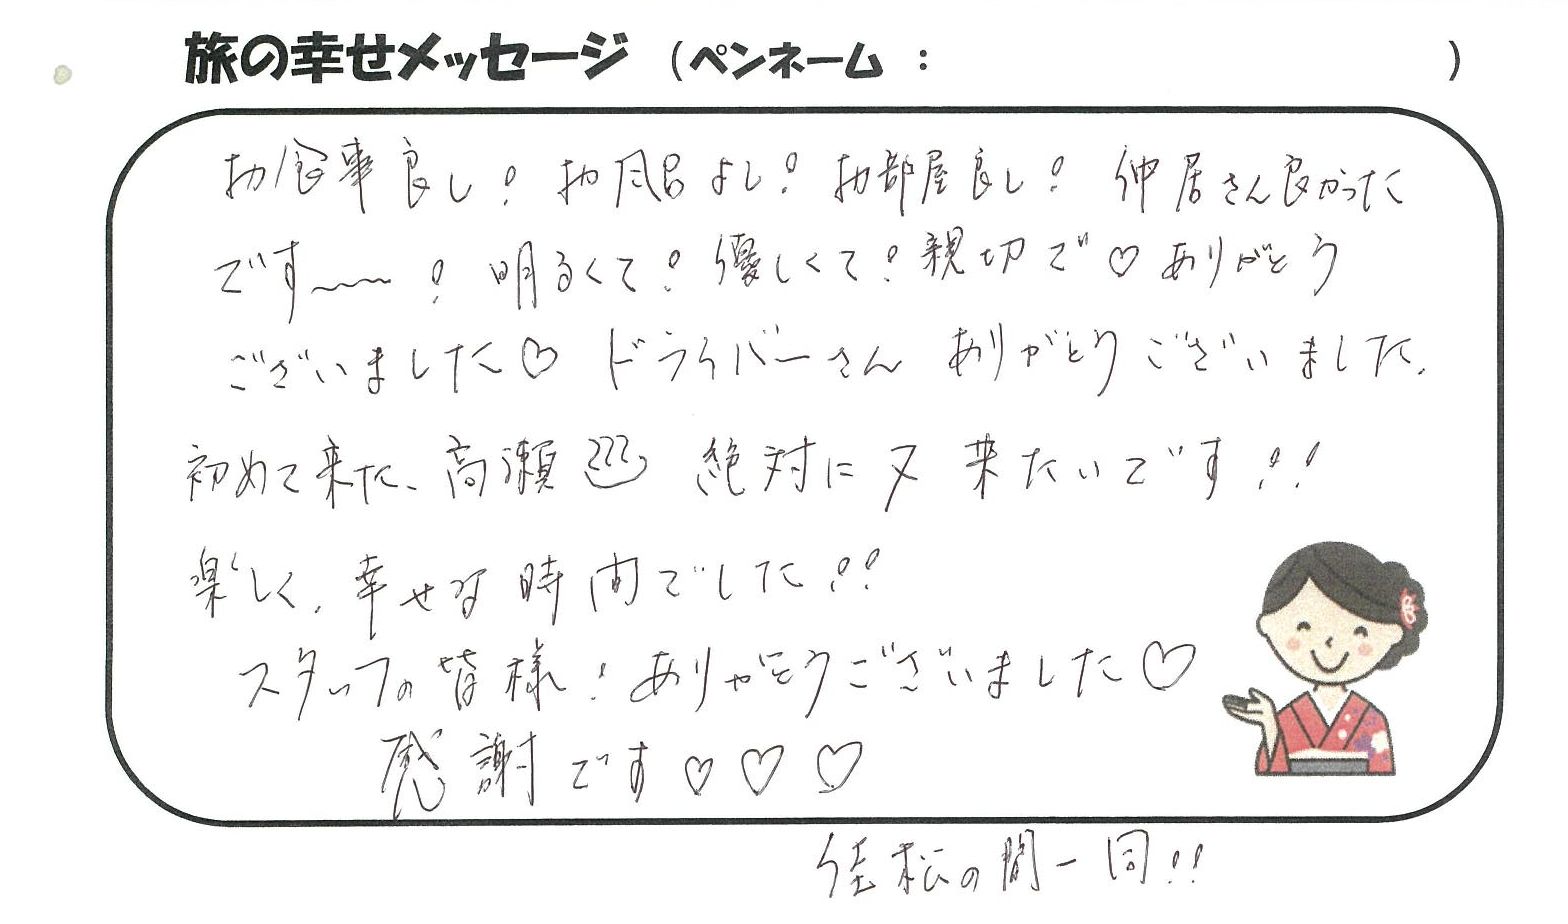 旅の幸せメッセージ （ペンネーム ： ）
お食事良し！ お風呂よし！ お部屋良し！ 仲居さん良かった
です〜〜！ 明るくて！ 優しくて！ 親切で♡ ありがとう
ございました♡ ドライバーさん ありがとうございました。
初めて来た、高瀬♨ 絶対に又来たいです！！
楽しく、幸せな時間でした！！
スタッフの皆様！ありがとうございました♡
感謝です♡♡♡
佳松の間一同！！